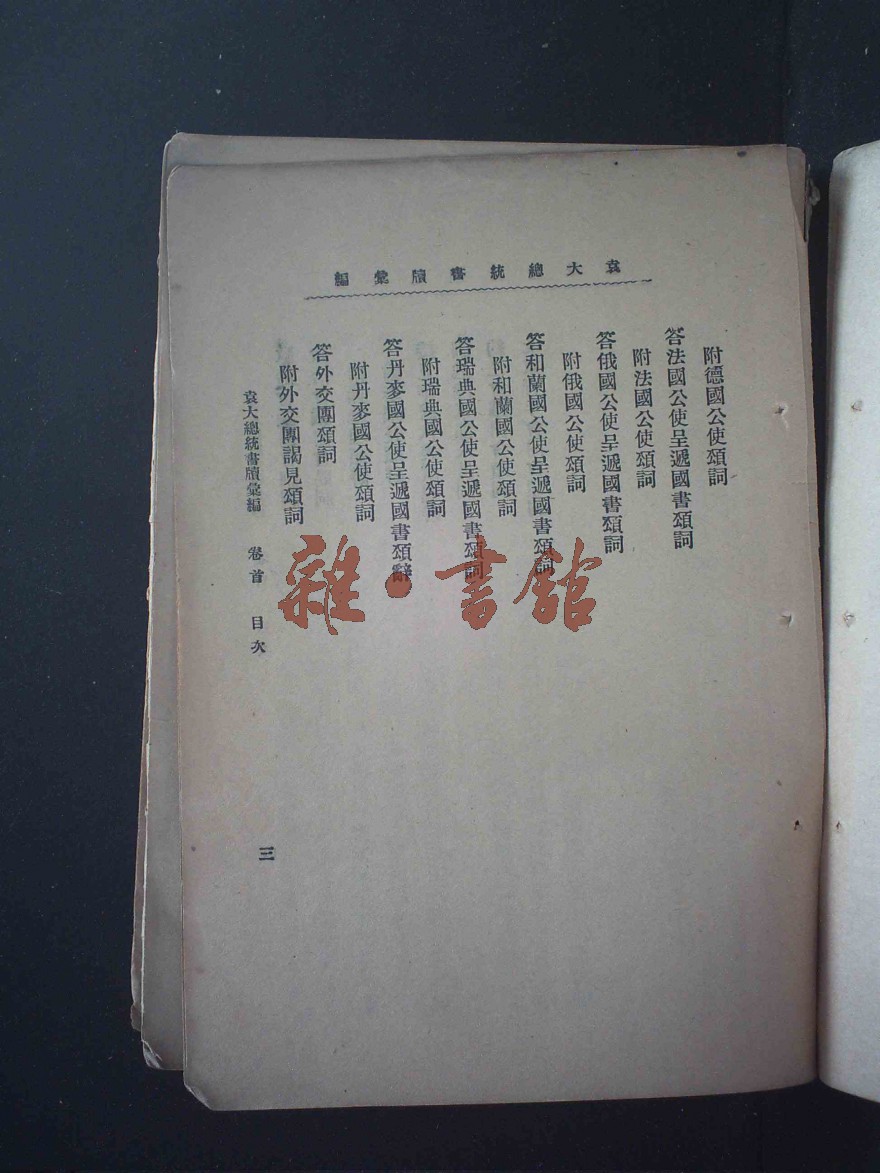 袁大總統書牘彙編
附德國公使頌詞
答法國公使呈遞國書頌詞
附法國公使頌詞
答俄國公使呈遞國書頌詞
附俄國公使頌詞
答和蘭國公使呈遞國書頌詞
附和蘭國公使頌詞
答瑞典國公使呈遞國書頌詞
附瑞典國公使頌詞
答丹麥國公使呈遞國書頌辭
附丹麥國公使頌詞
答外交團頌詞
附外交團謁見頌詞
袁大總統書牘彙編 卷首 目次
三
雜·書館